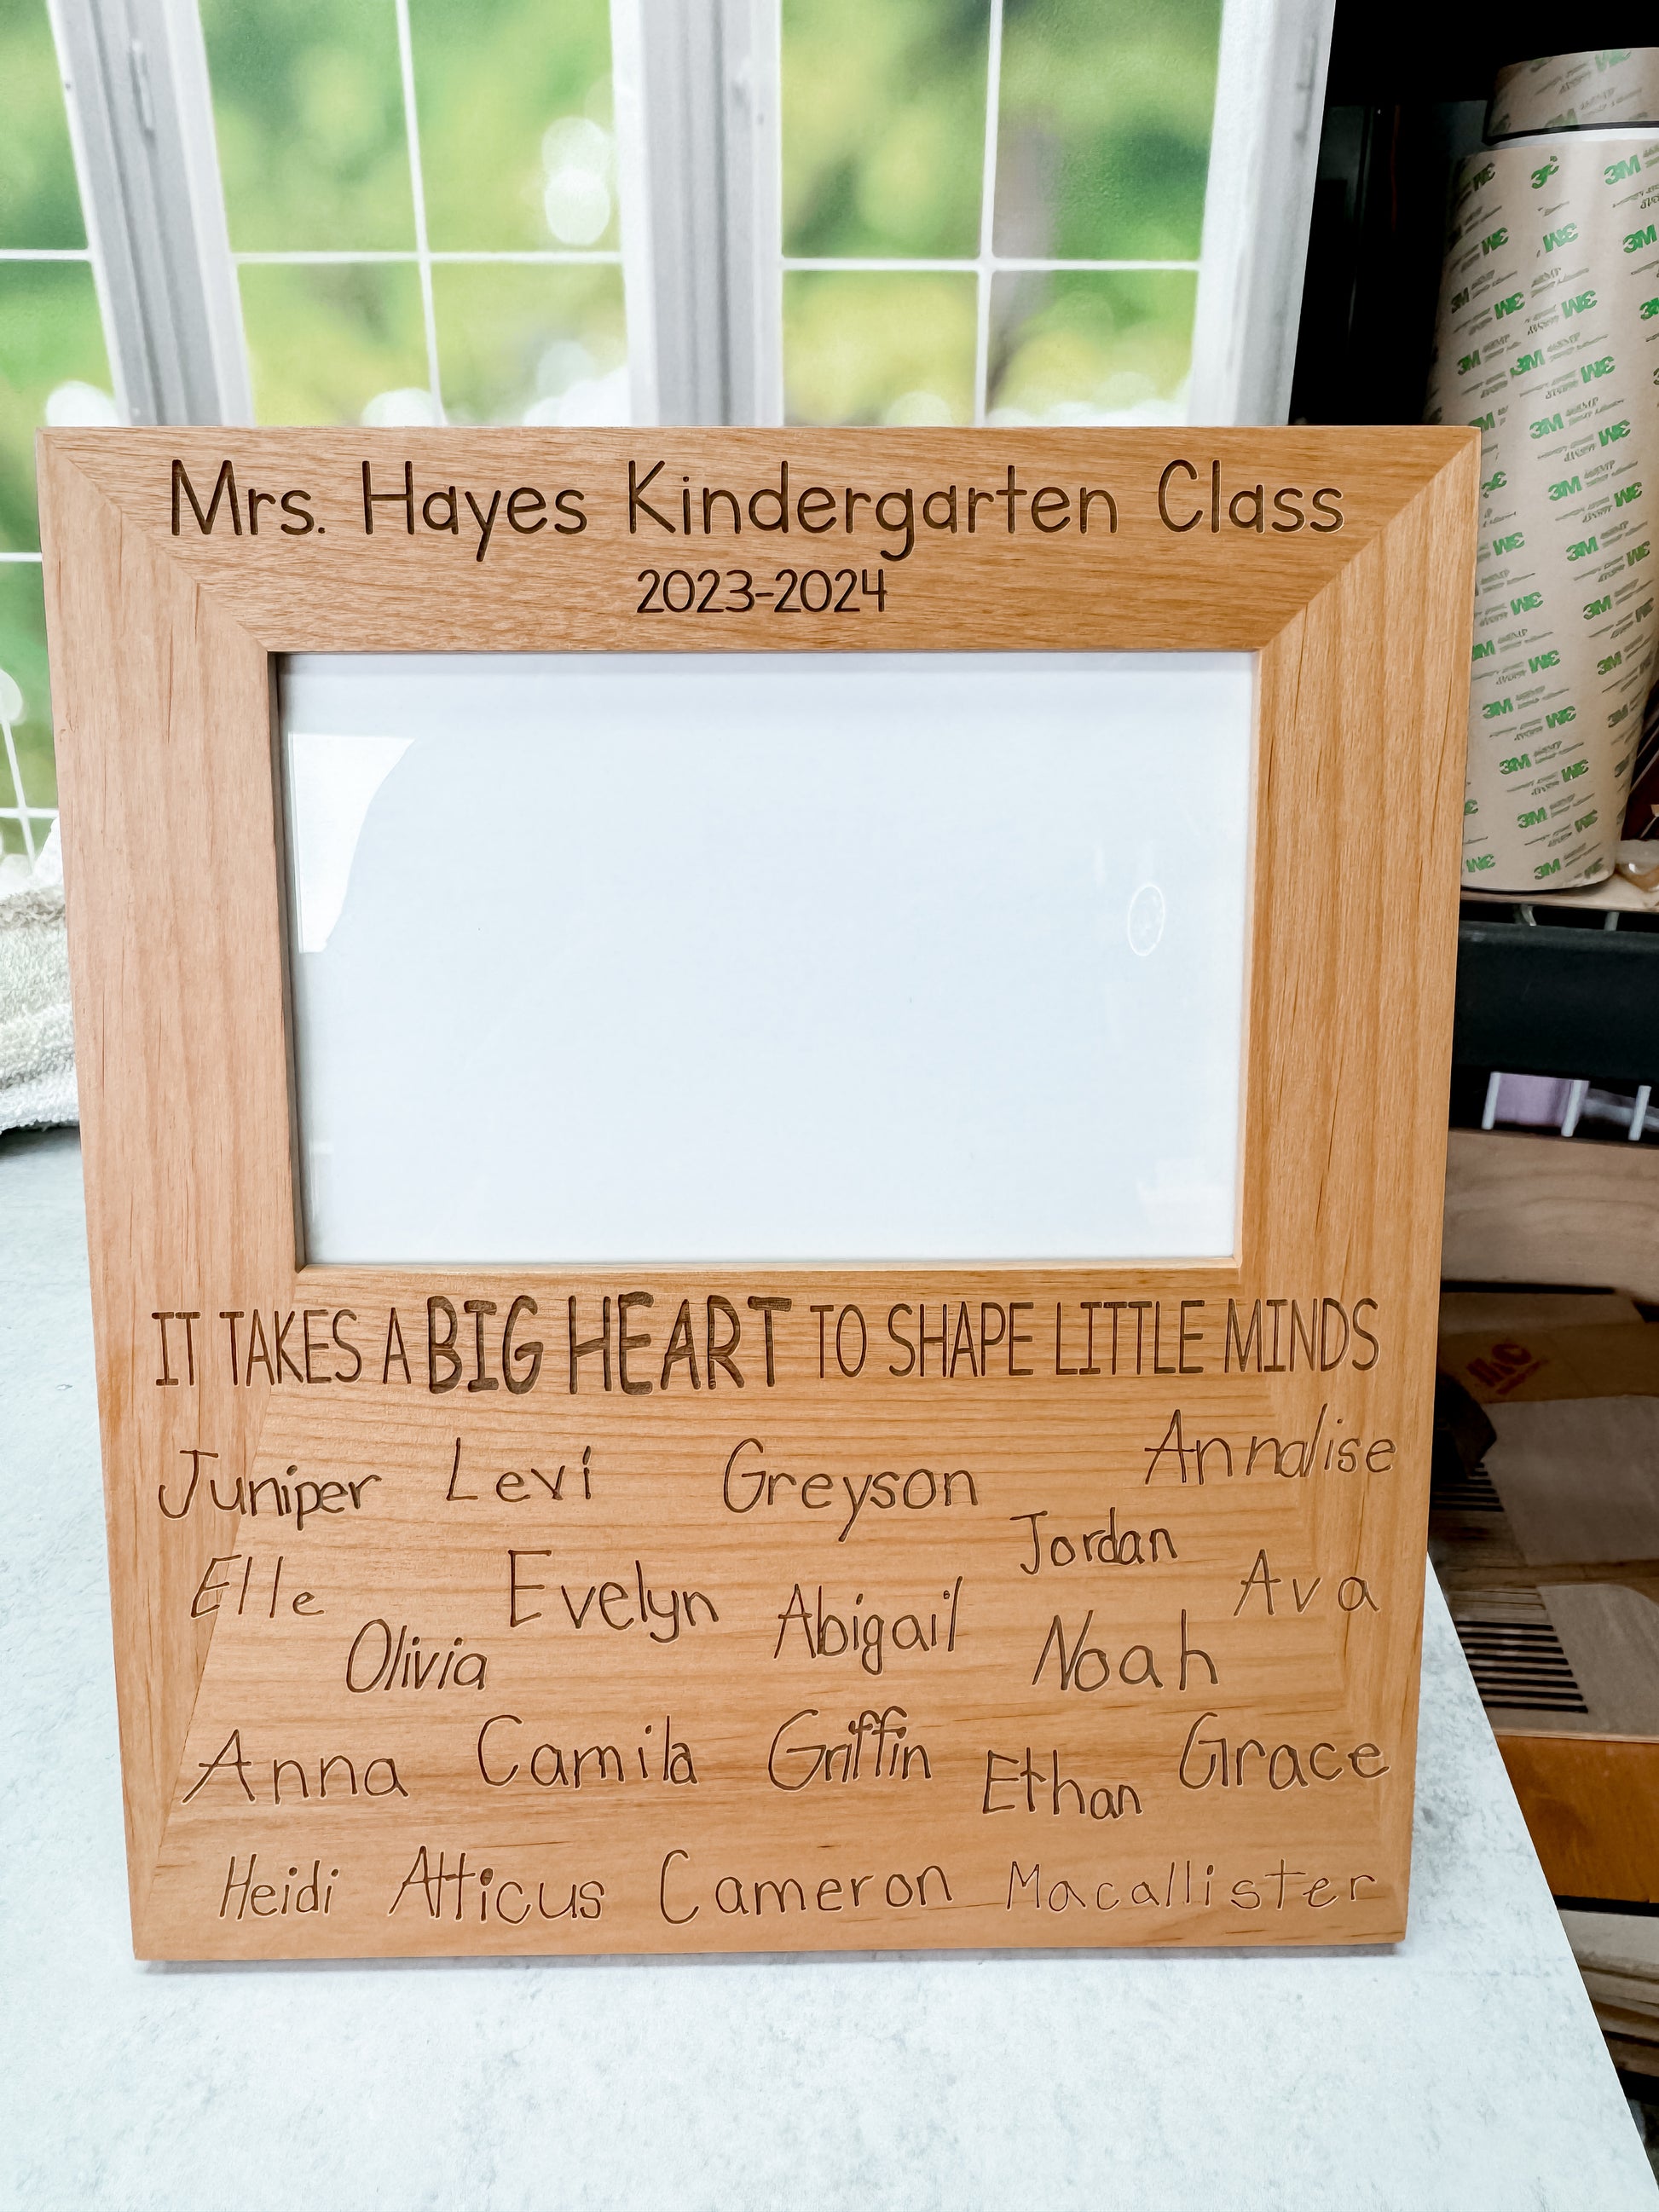 Mrs. Hayes Kindergarten Class
2023-2024
IT TAKES A BIG HEART TO SHAPE LITTLE MINDS
Juniper Levi Greyson Annalise
Jordan
Elle Evelyn Abigail Ava
Olivia Noah
Anna Camila Griffin Ethan Grace
Heidi Atticus Cameron Macallister
3M